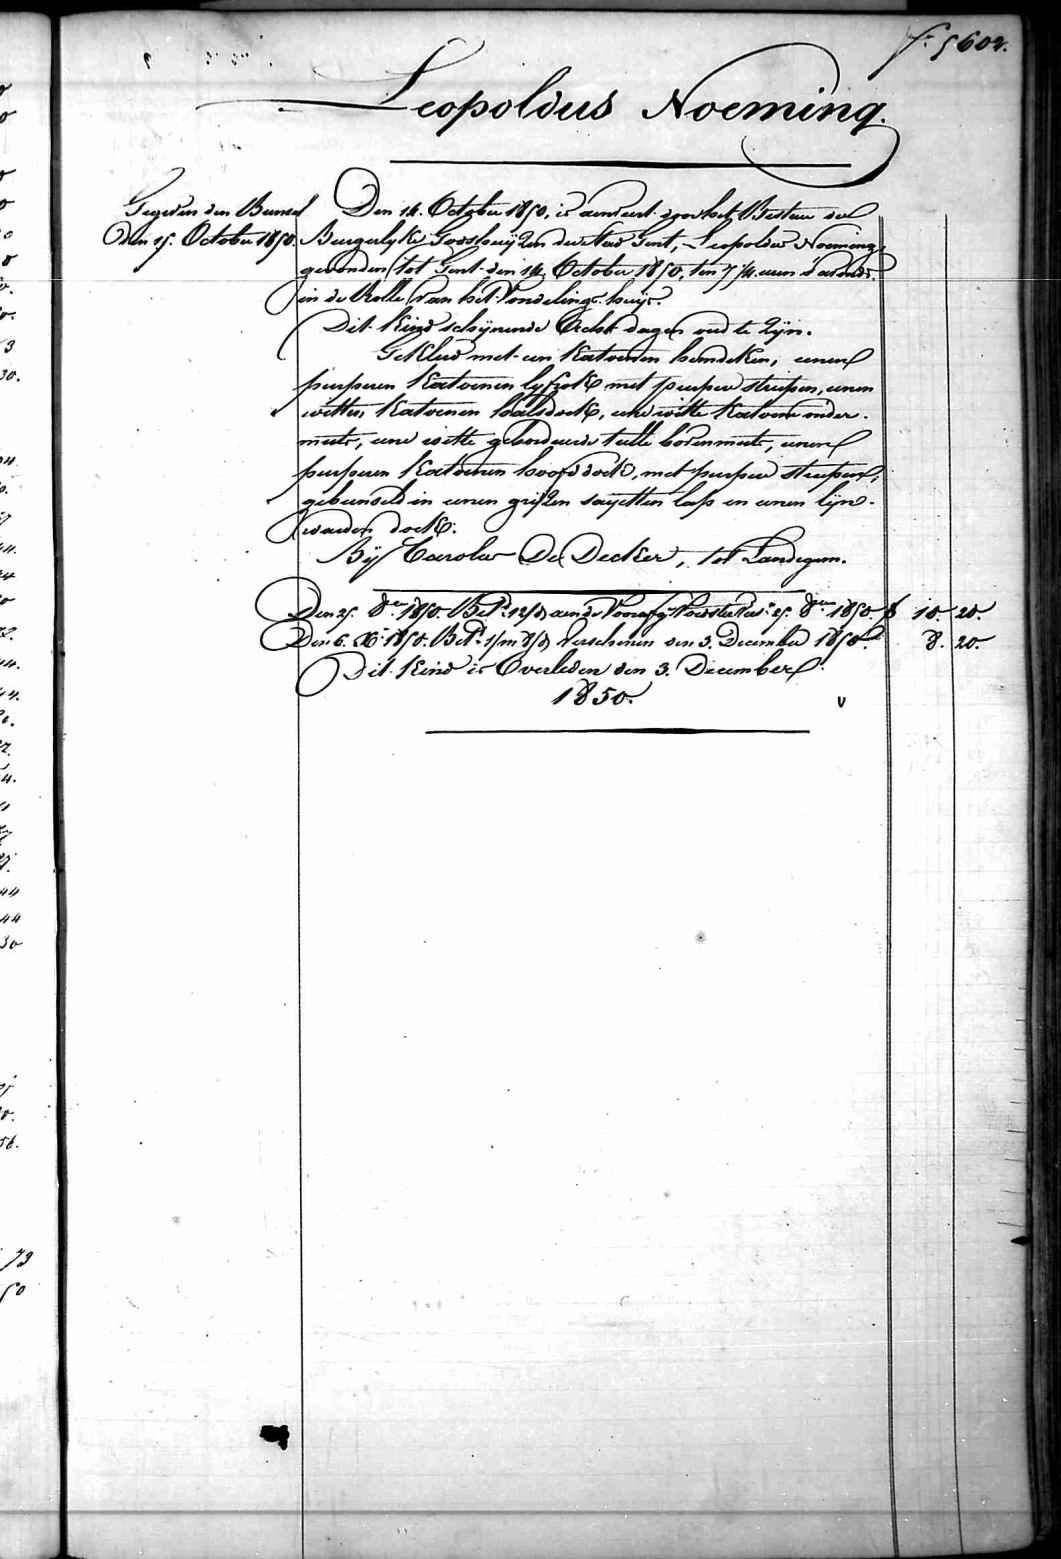 f° 5602.
Leopoldus Noeming.
Gegeven den Bundel
den 15. October 1850.
Den 14. October 1850, is aenveert door het Bestier der
Burgerlyke Godshuijzen der stad Gent, Leopoldus Noeming,
gevonden tot Gent den 14. October 1850, ten 7 1/4 uren 's avonds.
in de Rolle van het Vondelings-huijs.
Dit kind schijnende Acht dagen oud te zijn.
Gekleed met een katoenen hemdeken, eenen
purperen katoenen lyfrok met purpere streepen, eenen
witten katoenen halsdoek, eene witte katoene onder-
muts, eene witte geborduurde tulle bovenmuts, eenen
purperen katoenen hoofddoek, met purpere streepen,
gebunseld in eenen grijzen saijetten lap en eenen lijn-
waeden doek.
Bij Carolus De Decker, tot Landegem.
Den 25. 8er 1850. Bet. 12/d aen de 25. 8er 1850 f 10. 20.
Den 6. Xr 1850. Bet. 1/m 8/d verschenen den 3. December 1850. 8. 20.
Dit kind is Overleden den 3. December
1850.